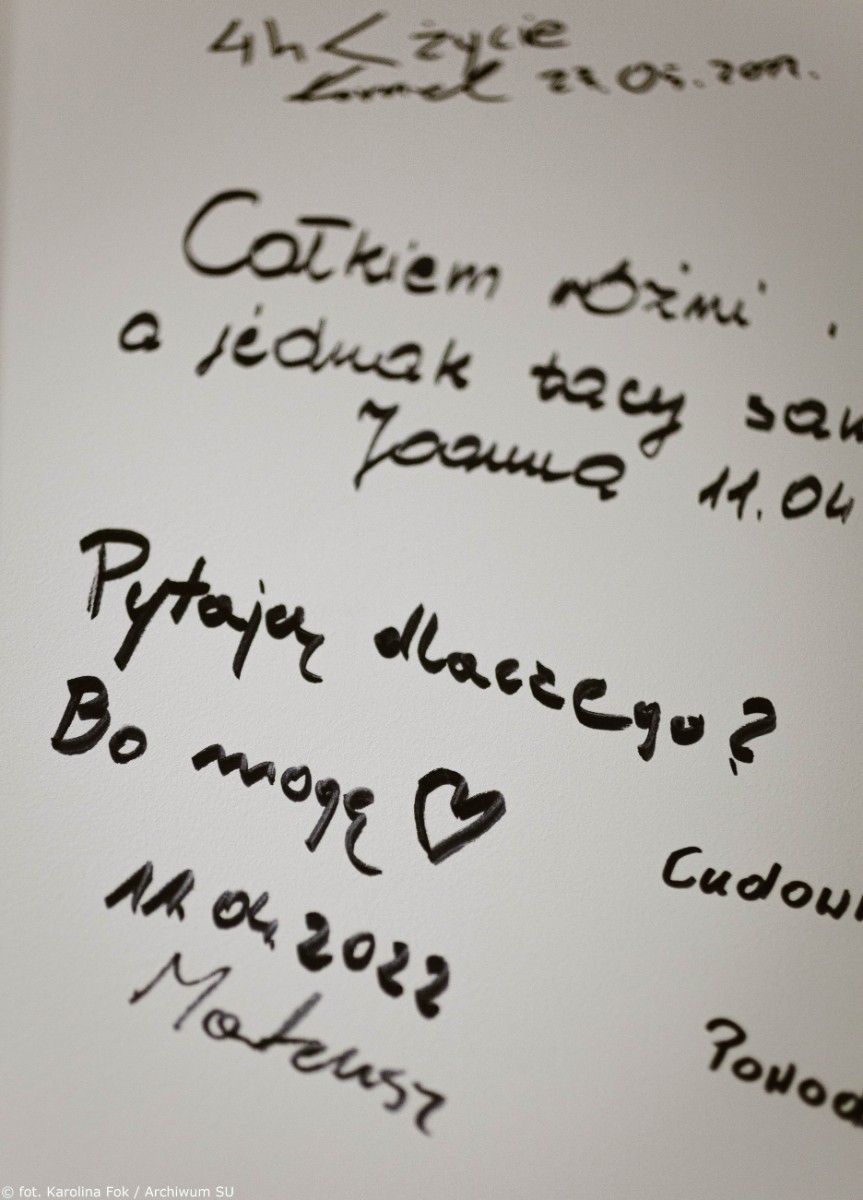 4h < życie
Kornel 22.05.2022.
Całkiem różni.
a jednak tacy sam
Joanna 11.04
Pytają dlaczego?
Bo mogę ♡
11.04.2022
Mateusz
Cudown
Powod
© fot. Karolina Fok / Archiwum SU